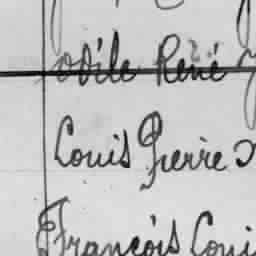 Odile René
Louis Pierre
François Loui